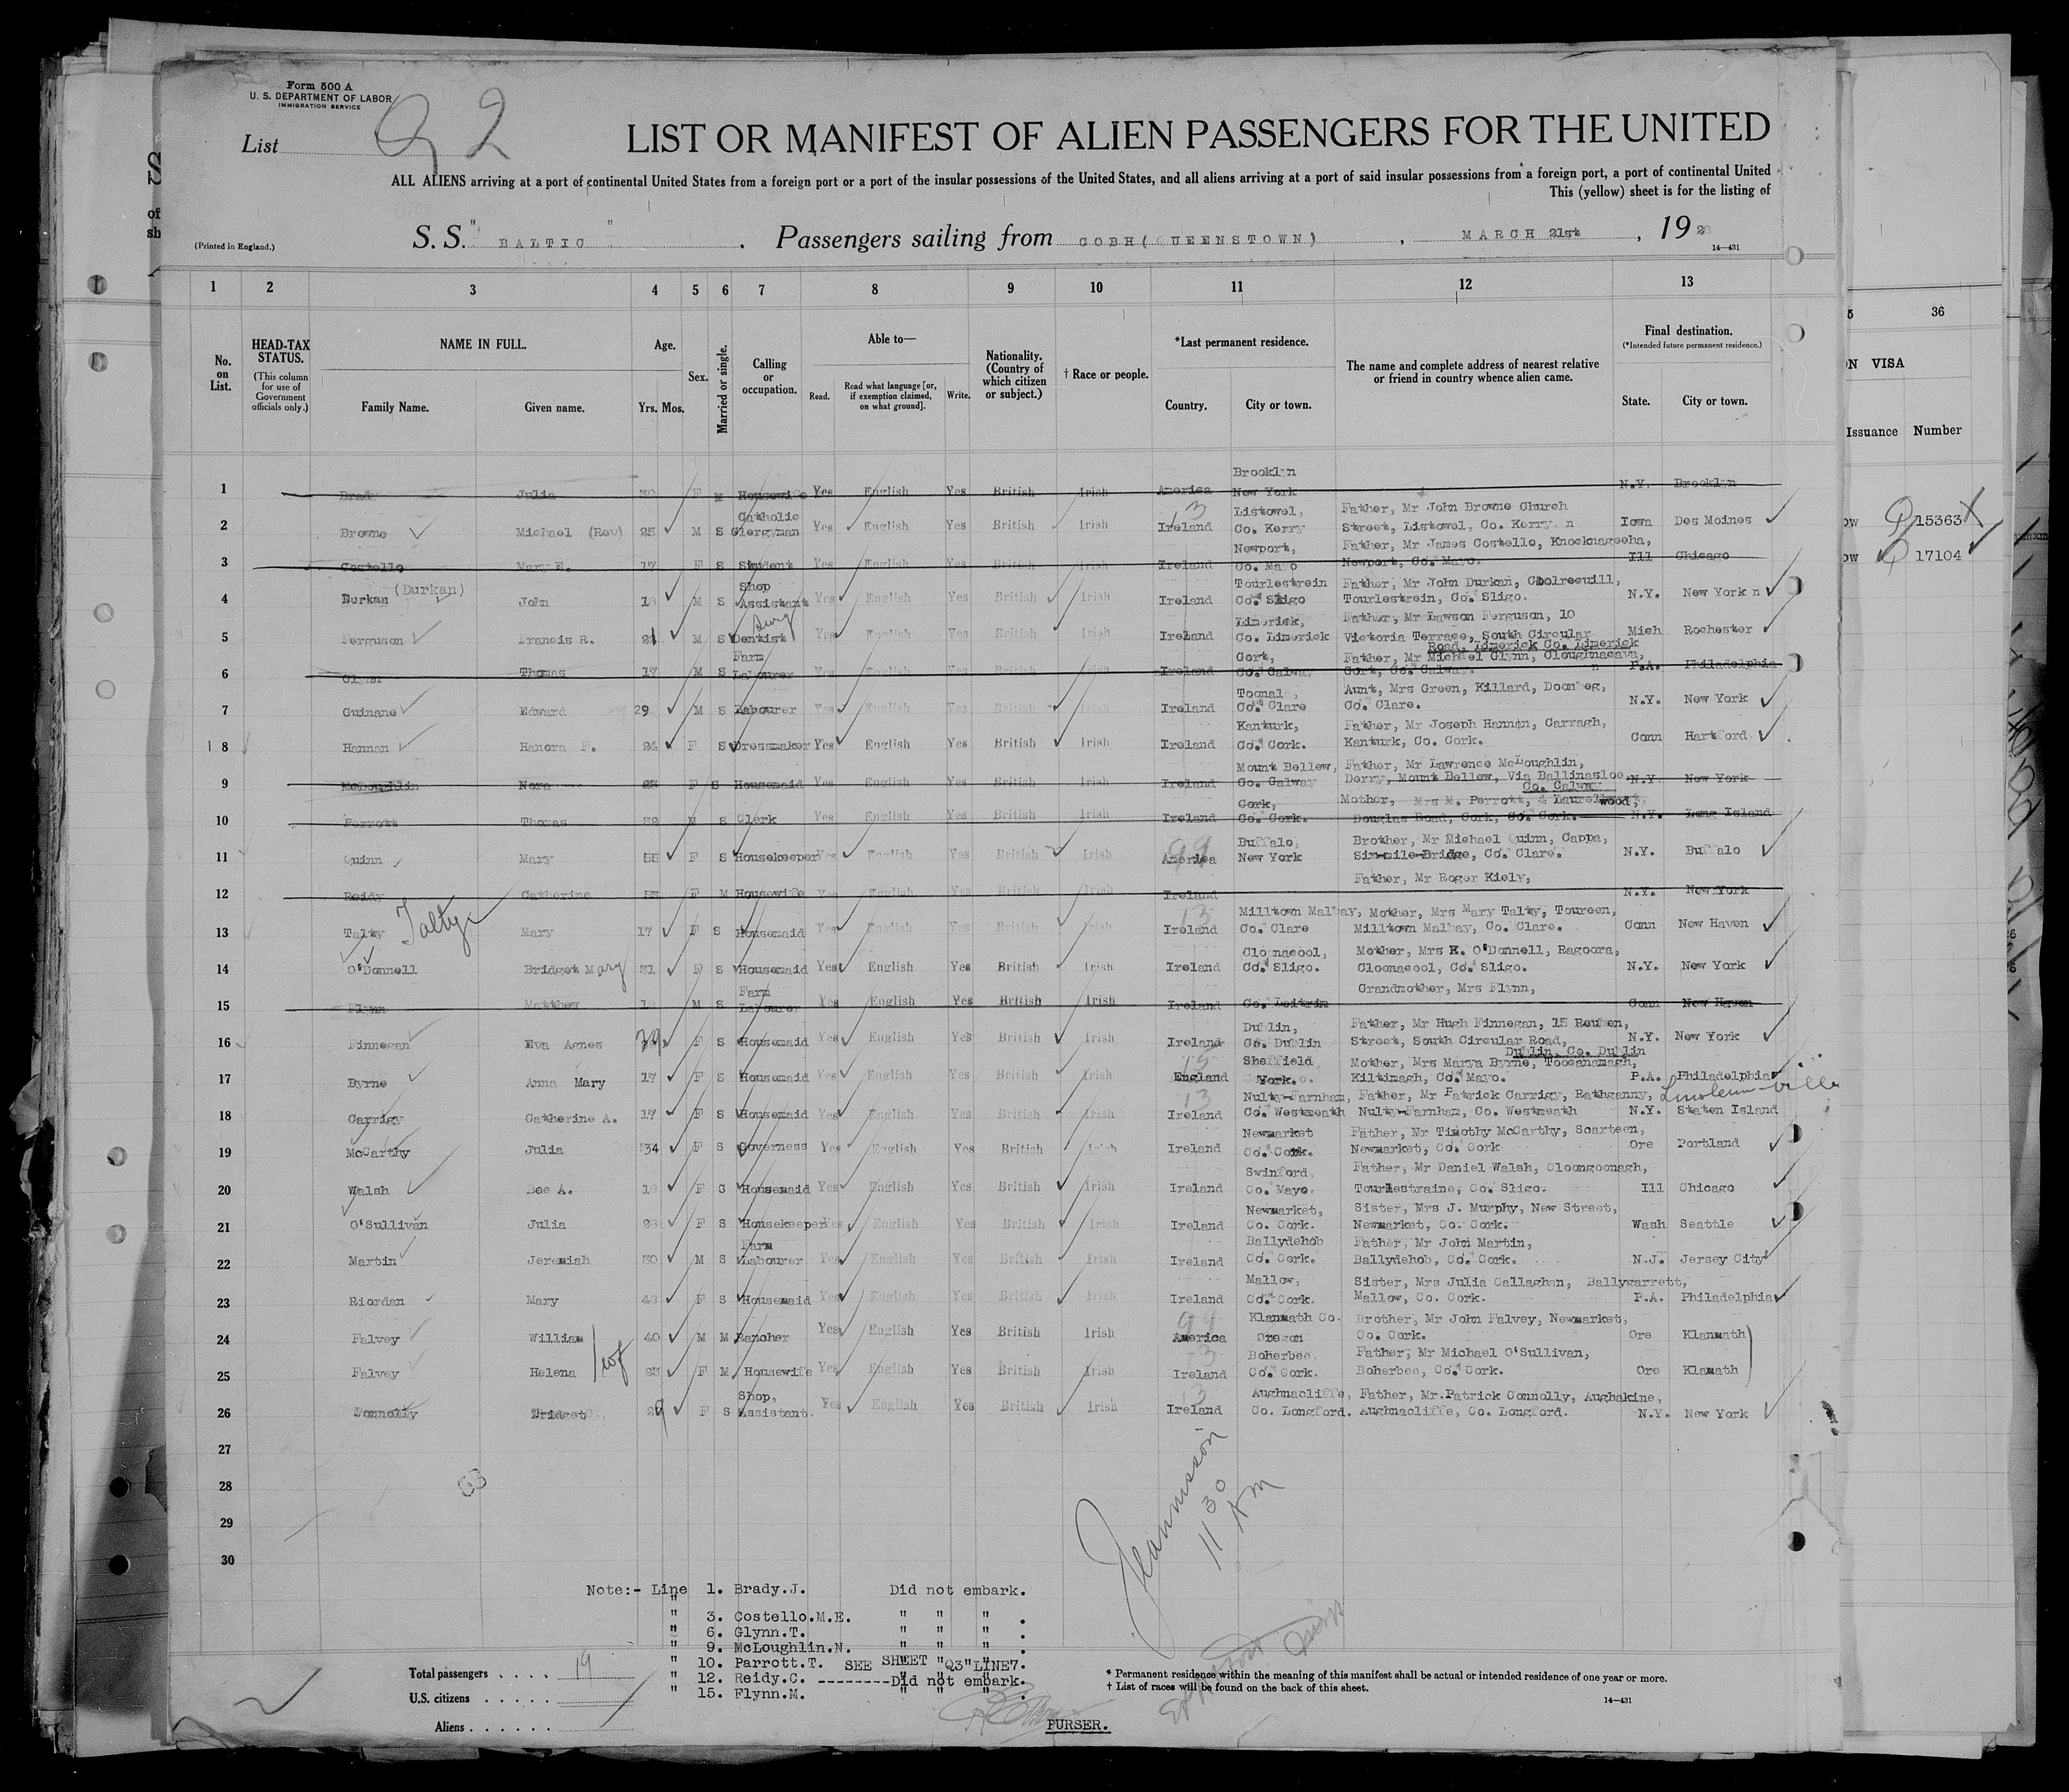 Form 500 A
U. S. DEPARTMENT OF LABOR
IMMIGRATION SERVICE
List Q 2
LIST OR MANIFEST OF ALIEN PASSENGERS FOR THE UNITED
ALL ALIENS arriving at a port of continental United States from a foreign port or a port of the insular possessions of the United States, and all aliens arriving at a port of said insular possessions from a foreign port, a port of continental United
This (yellow) sheet is for the listing of
(Printed in England.)
S. S. " BALTIC " . Passengers sailing from COBH(QUEENSTOWN) , MARCH 21st , 192
14—431
1 2 3 4 5 6 7 8 9 10 11 12 13
36
No. on List.
HEAD-TAX STATUS.
(This column for use of Government officials only.)
NAME IN FULL.
Family Name. Given name.
Age.
Yrs. Mos.
Sex.
Married or single.
Calling or occupation.
Able to—
Read.
Read what language [or, if exemption claimed, on what ground].
Write.
Nationality. (Country of which citizen or subject.)
† Race or people.
*Last permanent residence.
Country. City or town.
The name and complete address of nearest relative or friend in country whence alien came.
Final destination.
(*Intended future permanent residence.)
State. City or town.
VISA
Issuance Number
15363
17104
1 Brady Julia F M Housewife Yes English Yes British Irish America Brooklyn New York N.Y. Brooklyn
2 Browne Michael (Rev) 25 M S Catholic Clergyman Yes English Yes British Irish Ireland Listowel, Co. Kerry Father, Mr John Browne Church Street, Listowel, Co. Kerry. Iowa Des Moines
3 Costello Mary E. 17 F S Student Yes English Yes British Irish Ireland Newport, Co. Mayo Father, Mr James Costello, Knocknageeha, Newport, Co. Mayo. Ill Chicago
4 Durkan (Durkan) John M S Shop Assistant Yes English Yes British Irish Ireland Tourlestrein Co. Sligo Father, Mr John Durkan, Tourlestrein, Co. Sligo. N.Y. New York
5 Ferguson Francis R. 21 M S Dentist Yes English Yes British Irish Ireland Limerick, Co. Limerick Father, Mr Lawson Ferguson, 10 Victoria Terrace, South Circular Road, Limerick Co. Limerick Mich Rochester
6 Glynn Thomas M S Farm Labourer Yes English Yes British Irish Ireland Gort, Co. Galway Father, Mr Michael Glynn, Gort, Co. Galway. P.A. Philadelphia
7 Guinane Edward 29 M S Labourer Yes English Yes British Irish Ireland Co. Clare Aunt, Mrs Green, Killard, Doonbeg, Co. Clare. N.Y. New York
8 Hannan Hanora F. 24 F S Dressmaker Yes English Yes British Irish Ireland Kanturk, Co. Cork. Father, Mr Joseph Hannan, Carragh, Kanturk, Co. Cork. Conn Hartford
9 McLoughlin Nora F S Housemaid Yes English Yes British Irish Ireland Mount Bellew, Co. Galway Father, Mr Lawrence McLoughlin, Derry, Mount Bellew, Via Ballinasloe, Co. Galway N.Y. New York
10 Parrott Thomas M S Clerk Yes English Yes British Irish Ireland Cork, Co. Cork. Mother, Mrs M. Perrott, 4 Laurelwood, Douglas Road, Cork, Co. Cork. N.Y. Long Island
11 Quinn Mary 55 F S Housekeeper Yes English Yes British Irish America Buffalo, New York Brother, Mr Michael Quinn, Cappa, Six-mile-Bridge, Co. Clare. N.Y. Buffalo
12 Reidy Catherine F M Housewife Yes English Yes British Irish Ireland Father, Mr Roger Kiely, N.Y. New York
13 Talty Talty Mary 17 F S Housemaid Yes English Yes British Irish Ireland Milltown Malbay, Co. Clare Mother, Mrs Mary Talty, Toureen, Milltown Malbay, Co. Clare. Conn New Haven
14 O'Donnell Bridget Mary 31 F S Housemaid Yes English Yes British Irish Ireland Cloonacool, Co. Sligo. Mother, Mrs K. O'Donnell, Ragoora, Cloonacool, Co. Sligo. N.Y. New York
15 Flynn Matthew M S Farm Labourer Yes English Yes British Irish Ireland Co. Leitrim Grandmother, Mrs Flynn, Conn New Haven
16 Finnegan Eva Agnes 39 F S Housemaid Yes English Yes British Irish Ireland Dublin, Co. Dublin Father, Mr Hugh Finnegan, 15 Reuben, Street, South Circular Road, Dublin, Co. Dublin N.Y. New York
17 Byrne Anna Mary 17 F S Housemaid Yes English Yes British Irish England Sheffield York. Mother, Mrs Marya Byrne, Toocanamagh, Kiltimagh, Co. Mayo. P.A. Philadelphia
18 Carrigy Catherine A. 17 F S Housemaid Yes English Yes British Irish Ireland Nulty-Farnham, Co. Westmeath Father, Mr Patrick Carrigy, Rathganny, Nulty-Farnham, Co. Westmeath N.Y. Linoleumville Staten Island
19 McCarthy Julia 34 F S Governess Yes English Yes British Irish Ireland Newmarket Co. Cork. Father, Mr Timothy McCarthy, Scarteen, Newmarket, Co. Cork Ore Portland
20 Walsh Bee A. F S Housemaid Yes English Yes British Irish Ireland Swinford, Co. Mayo. Father, Mr Daniel Walsh, Cloongoonagh, Tourlestraine, Co. Sligo. Ill Chicago
21 O'Sullivan Julia F S Housekeeper Yes English Yes British Irish Ireland Newmarket, Co. Cork. Sister, Mrs J. Murphy, New Street, Newmarket, Co. Cork. Wash Seattle
22 Martin Jeremiah 30 M S Farm Labourer Yes English Yes British Irish Ireland Ballydehob Co. Cork. Father, Mr John Martin, Ballydehob, Co. Cork. N.J. Jersey City
23 Riordan Mary F S Housemaid Yes English Yes British Irish Ireland Mallow, Co. Cork. Sister, Mrs Julia Callaghan, Ballygarrett, Mallow, Co. Cork. P.A. Philadelphia
24 Falvey William 40 M M Rancher Yes English Yes British Irish America Klanmath Co. Oregon Brother, Mr John Falvey, Newmarket, Co. Cork. Ore Klanmath
25 Falvey Helena wf F M Housewife Yes English Yes British Irish Ireland Boherbee, Co. Cork. Father, Mr Michael O'Sullivan, Boherbee, Co. Cork. Ore Klamath
26 Connolly Bridget 29 F S Shop, Assistant. Yes English Yes British Irish Ireland Aughnacliffe, Co. Longford. Father, Mr. Patrick Connolly, Aughakine, Aughnacliffe, Co. Longford. N.Y. New York
27
28
29
30
11 30 AM
Note:- Line 1. Brady.J. Did not embark.
" 3. Costello.M.E. " " " .
" 6. Glynn.T. " " " .
" 9. McLoughlin.N. " " " .
" 10. Parrott.T. SEE SHEET "Q3"LINE7.
" 12. Reidy.C. --------Did not embark.
" 15. Flynn.M. " " " .
PURSER.
Total passengers . . . . 19
U.S. citizens . . . . .
Aliens . . . . . .
* Permanent residence within the meaning of this manifest shall be actual or intended residence of one year or more.
† List of races will be found on the back of this sheet.
14—431